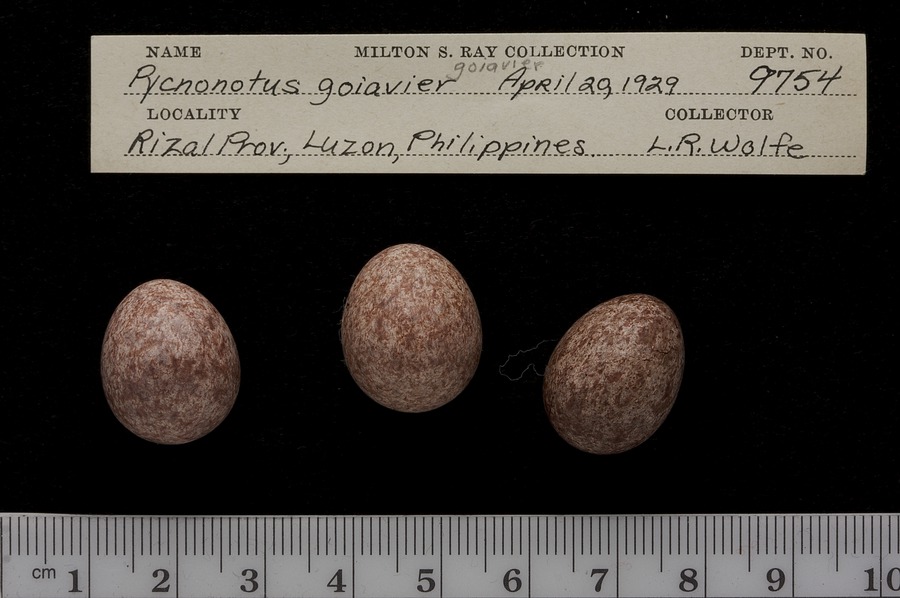 NAME MILTON S. RAY COLLECTION DEPT. NO.
goiavier
Pycnonotus goiavier April 20, 1929 9754
LOCALITY COLLECTOR
Rizal Prov., Luzon, Philippines. L.R. Wolfe
cm 1 2 3 4 5 6 7 8 9 10